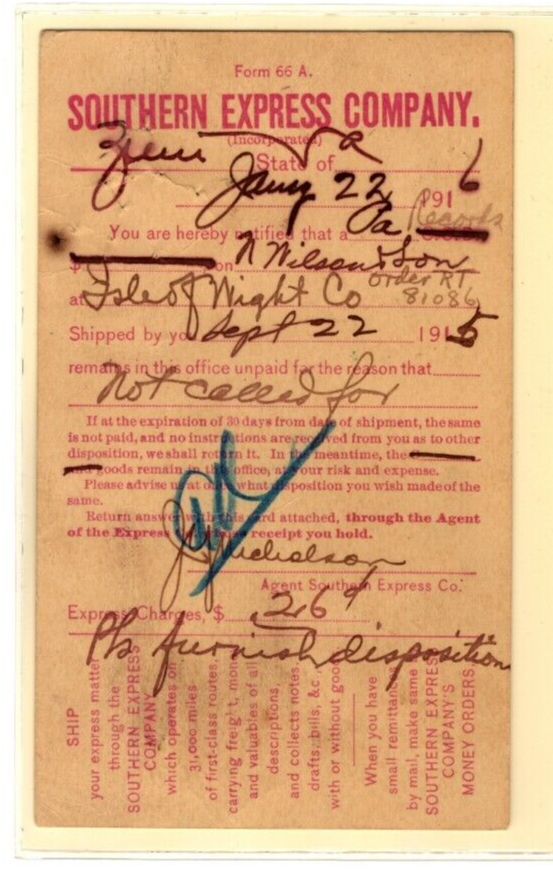 Form 66 A.
SOUTHERN EXPRESS COMPANY.
(Incorporated)
Zuni Va
State of
Jany 22 1916
You are hereby notified that a Pa. Records
$ on N Wilson & Son
order RT
at Isle of Wight Co 81086
Shipped by you Sept 22 1915
remains in this office unpaid for the reason that
Not called for
If at the expiration of 30 days from date of shipment, the same
is not paid, and no instructions are received from you as to other
disposition, we shall return it. In the meantime, the
goods remain in this office, at your risk and expense.
Please advise us at once what disposition you wish made of the
same.
Return answer with this card attached, through the Agent
of the Express whose receipt you hold.
Nicholson
Agent Southern Express Co.
Express Charges, $ 26¢
Pls furnish disposition
SHIP
your express matter
through the
SOUTHERN EXPRESS
COMPANY
which operates on
31,000 miles
of first-class routes,
carrying freight, money
and valuables of all
descriptions,
and collects notes,
drafts, bills, &c.,
with or without goods
When you have
small remittances
by mail, make same
SOUTHERN EXPRESS
COMPANY'S
MONEY ORDERS.